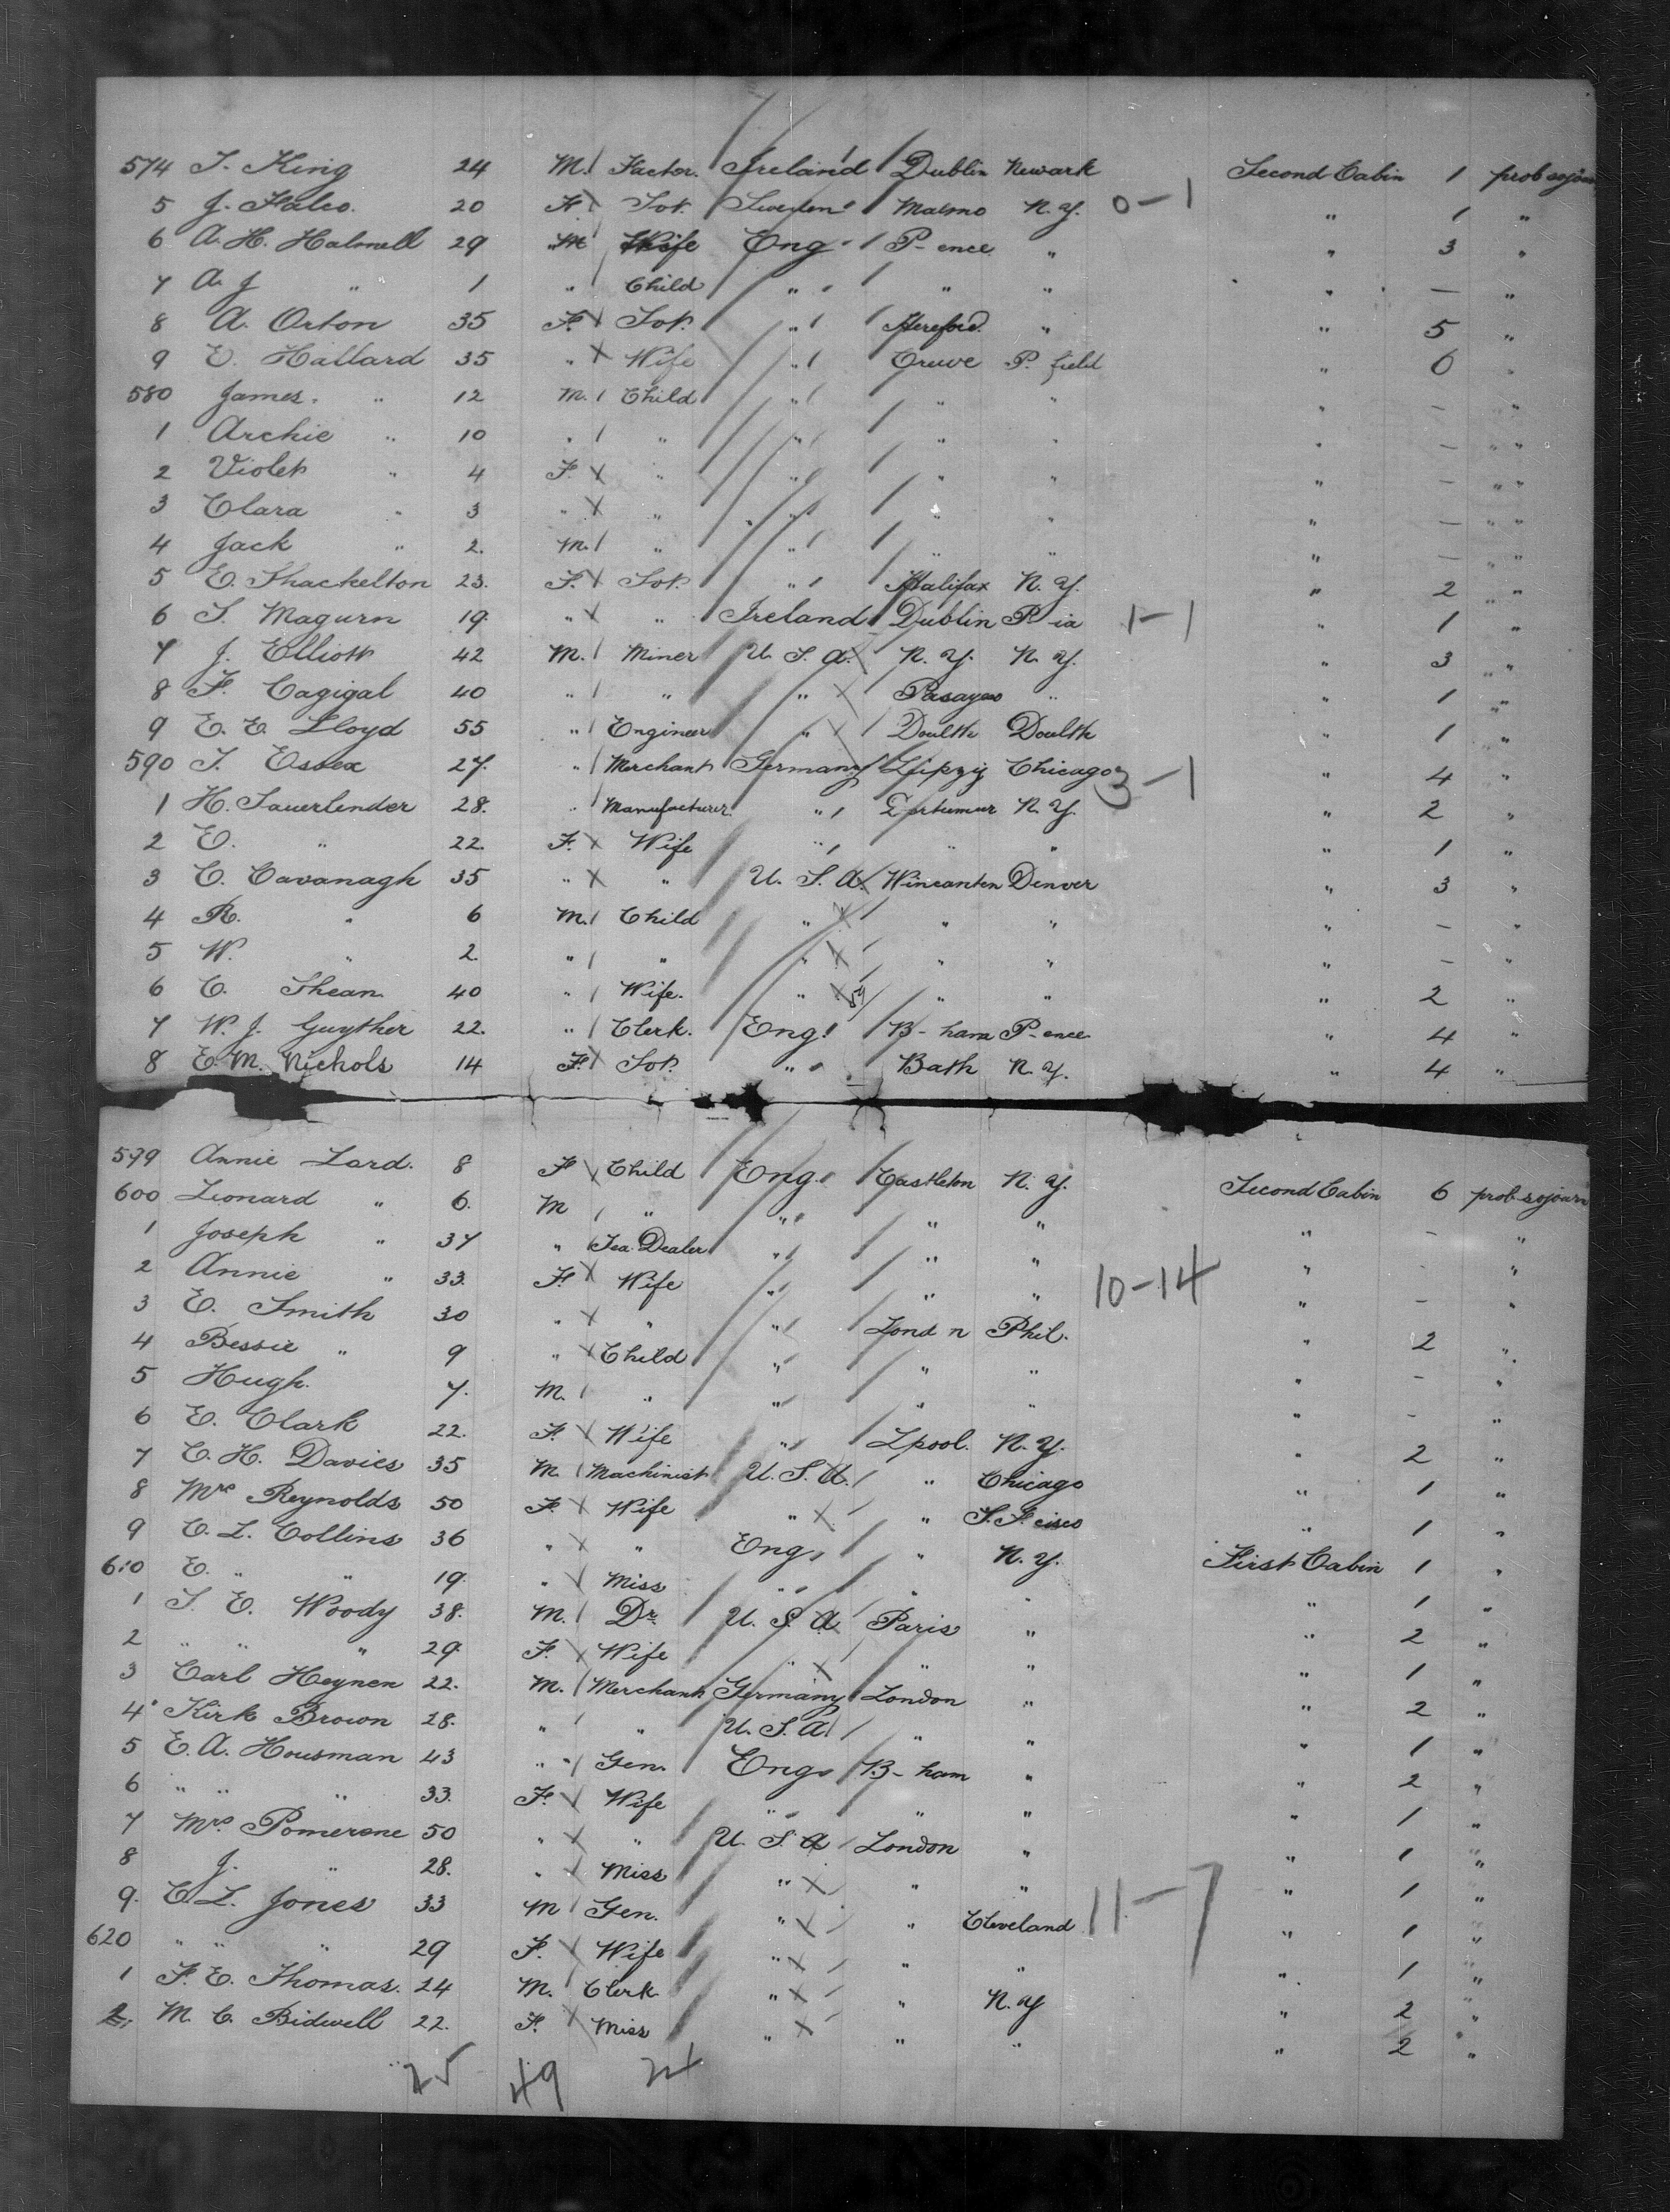 574 T. King 24 M. Factor. Ireland Dublin Newark Second Cabin 1 prob sojourn
5 J. Falco. 20 F Spt. Sweden Malmo N. Y. 0-1 " 1 "
6 A. H. Halmell 29 M Wife Eng P- ence " " 3 "
7 A. J " 1 " Child " " " " — "
8 A. Orton 35 F. Spt. " Hereford. " " 5 "
9 E. Hallard 35 " Wife " Crewe P. field " 6 "
580 James. " 12 M. Child " " " " — "
1 Archie " 10 " " " " " " — " "
2 Violet " 4 F. " " " " " — " "
3 Clara " 3 " " " " " " — " "
4 Jack " 2. M. " " " " " — " "
5 E. Shackelton 23. F. Spt. " Halifax N. Y. " 2 " "
6 S. Magurn 19. " " Ireland Dublin P- ia 1-1 " 1 "
7 J. Elliott 42 M. Miner U. S. A. N. Y. N. Y. " 3 "
8 F. Cagigal 40 " " " " " 1 "
9 E. E. Lloyd 55 " Engineer " Doulth Doulth " 1 "
590 S. Essex 27. " Merchant Germany Leipzig Chicago 3-1 " 4 "
1 H. Sauerlender 28. " Manufacturer. " N. Y. " 2 "
2 E. " 22. F. Wife " " " " 1 "
3 C. Cavanagh 35 " " U. S. A. Wincanten Denver " 3 "
4 R. " 6 M. Child " " " " — "
5 W. " 2. " " " " " " — "
6 C. Shean 40 " Wife. " " " " 2 "
7 W. J. Guyther 22. " Clerk. Eng. B- ham P- ence " 4 "
8 E. M. Nichols 14 F. Spt. " Bath N. Y. " 4 "
599 Annie Lord. 8 F Child Eng. Castleton N. Y. Second Cabin 6 prob sojourn
600 Leonard " 6. M " " " " " — "
1 Joseph " 37 " Tea Dealer " " " " - "
2 Annie " 33. F. Wife " " " 10-14 " — "
3 E. Smith 30 " " " Lond n Phil. " 2 "
4 Bessie " 9 " Child " " " " - "
5 Hugh. 7. M. " " " " " - "
6 E. Clark 22. F. Wife " Lpool. N. Y. " 2 "
7 C. H. Davies 35 M. Machinist U. S. A. " Chicago " 1 "
8 Mrs Reynolds 50 F. Wife " " S. F. cisco " 1 "
9 C. L. Collins 36 " " Eng " N. Y. First Cabin 1 "
610 E. " " 19. " Miss " " " " 1 "
1 S. E. Woody 38. M. Dr. U. S. A Paris " " 2 "
2 " " " 29. F. Wife " " " " 1 "
3 Carl Heynen 22. M. Merchant Germany London " " 2 "
4 Kirk Brown 28. " " U. S. A. " " " 1 "
5 E. A. Housman 43 " Gen. Eng B- ham " " 2 "
6 " " " 33. F. Wife " " " " 1 "
7 Mrs. Pomerene 50 " " U. S. A London " " 1 "
8 J. " 28. " Miss " " " " 1 "
9. C. L. Jones 33 M Gen. " " Cleveland 11-7 " 1 "
620 " " " 29 F. Wife " " " " 1 "
1 F. E. Thomas. 24 M. Clerk " " N. Y " 2 "
2 M. C. Bidwell 22. F. Miss " " " " 2 "
25 49 24